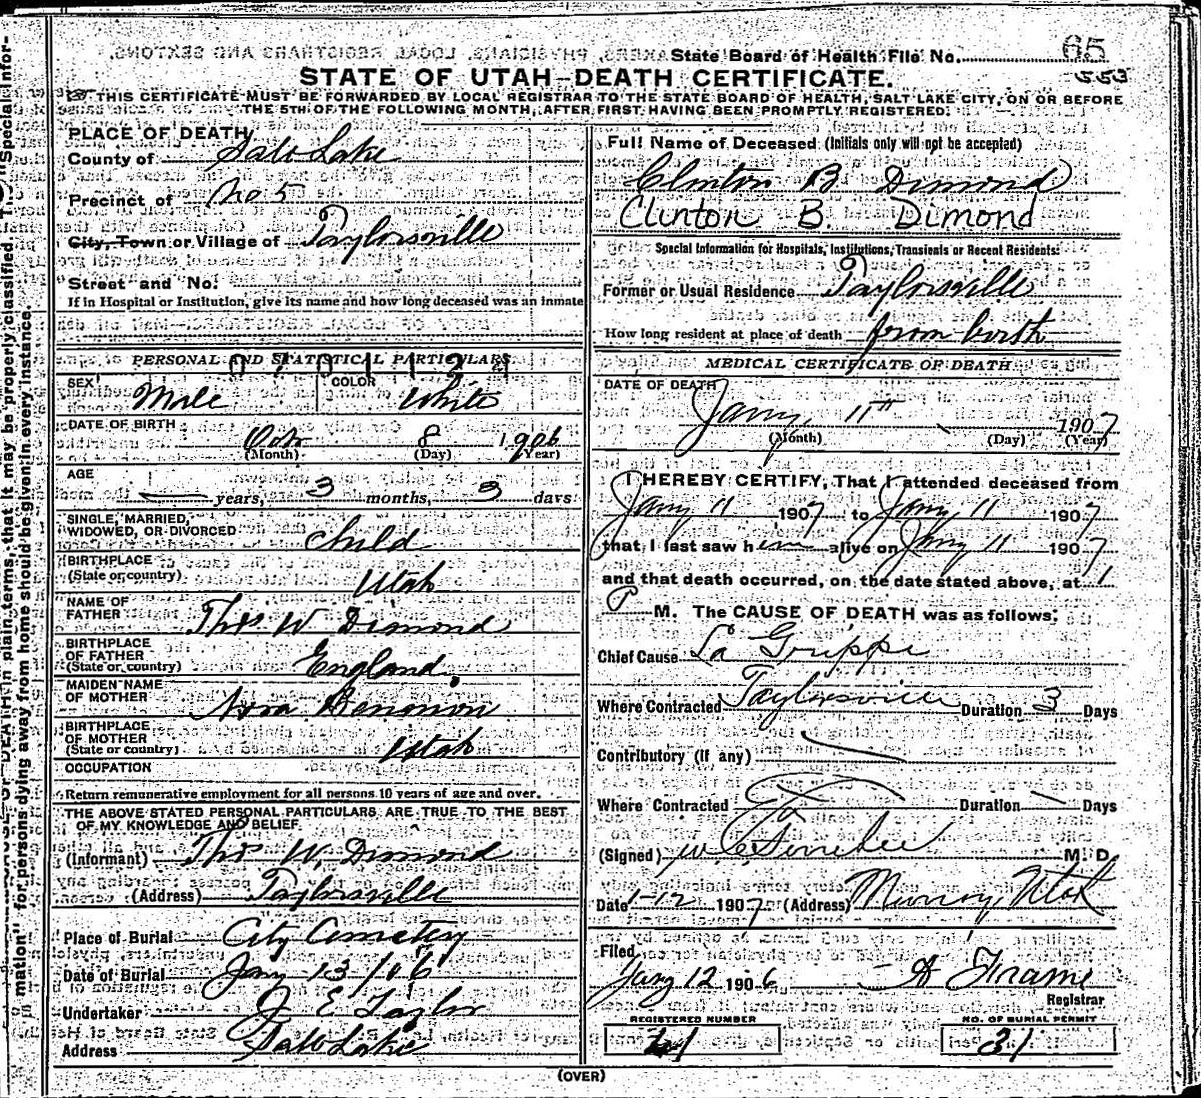 State Board of Health File No. 65
553
STATE OF UTAH—DEATH CERTIFICATE.
THIS CERTIFICATE MUST BE FORWARDED BY LOCAL REGISTRAR TO THE STATE BOARD OF HEALTH, SALT LAKE CITY, ON OR BEFORE
THE 5TH OF THE FOLLOWING MONTH, AFTER FIRST HAVING BEEN PROMPTLY REGISTERED.
PLACE OF DEATH
County of Salt Lake
Precinct of No 5
City, Town or Village of Taylorsville
Street and No.
If in Hospital or Institution, give its name and how long deceased was an inmate
PERSONAL AND STATISTICAL PARTICULARS
SEX Male COLOR White
DATE OF BIRTH Oct 8 1906
(Month) (Day) (Year)
AGE
years, 3 months, 3 days
SINGLE, MARRIED,
WIDOWED, OR DIVORCED Child
BIRTHPLACE
(State or country) Utah
NAME OF
FATHER Thos W Dimond
BIRTHPLACE
OF FATHER
(State or country) England.
MAIDEN NAME
OF MOTHER Nora Bennion
BIRTHPLACE
OF MOTHER
(State or country) Utah
OCCUPATION
Return remunerative employment for all persons 10 years of age and over.
THE ABOVE STATED PERSONAL PARTICULARS ARE TRUE TO THE BEST
OF MY KNOWLEDGE AND BELIEF.
(Informant) Thos W. Dimond
(Address) Taylorsville
Place of Burial City Cemetery
Date of Burial Jany 13/06
Undertaker J E Taylor
Address Salt Lake
Full Name of Deceased (Initials only will not be accepted)
Clinton B Dimond
Clinton B. Dimond
Special Information for Hospitals, Institutions, Transients or Recent Residents:
Former or Usual Residence Taylorsville
How long resident at place of death from birth
MEDICAL CERTIFICATE OF DEATH
DATE OF DEATH
Jany 11th 1907
(Month) (Day) (Year)
I HEREBY CERTIFY, That I attended deceased from
Jany 11 1907 to Jany 11 1907
that I last saw him alive on Jany 11 1907
and that death occurred, on the date stated above, at 1
P M. The CAUSE OF DEATH was as follows:
Chief Cause La Grippe
Where Contracted Taylorsville Duration 3 Days
Contributory (if any)
Where Contracted Duration — Days
(Signed) M. D.
Date 1-12 1907 (Address) Murray, Utah
Filed
Jany 12 1906 A Frame
Registrar
REGISTERED NUMBER NO. OF BURIAL PERMIT
31
(OVER)
mation" for persons dying away from home should be given in every instance.
OF DEATH in plain terms, that it may be properly classified. The "Special Infor-